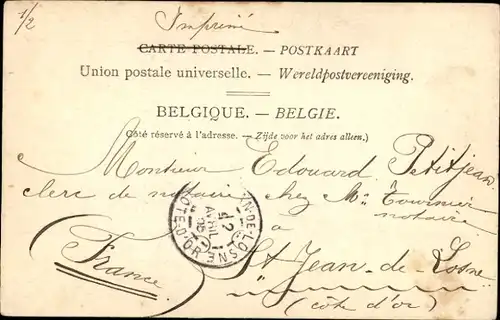 1/2
Imprimé
CARTE POSTALE. — POSTKAART
Union postale universelle. — Wereldpostvereeniging.
BELGIQUE. — BELGIE.
Côté réservé à l'adresse. — Zijde voor het adres alleen.)
Monsieur Edouard Petitjean
clerc de notaire chez Me Tournier
notaire
à
St Jean-de-Losne
(côte d'or)
(France)
N-DE-LOSNE
AVRIL
COTE-D'OR